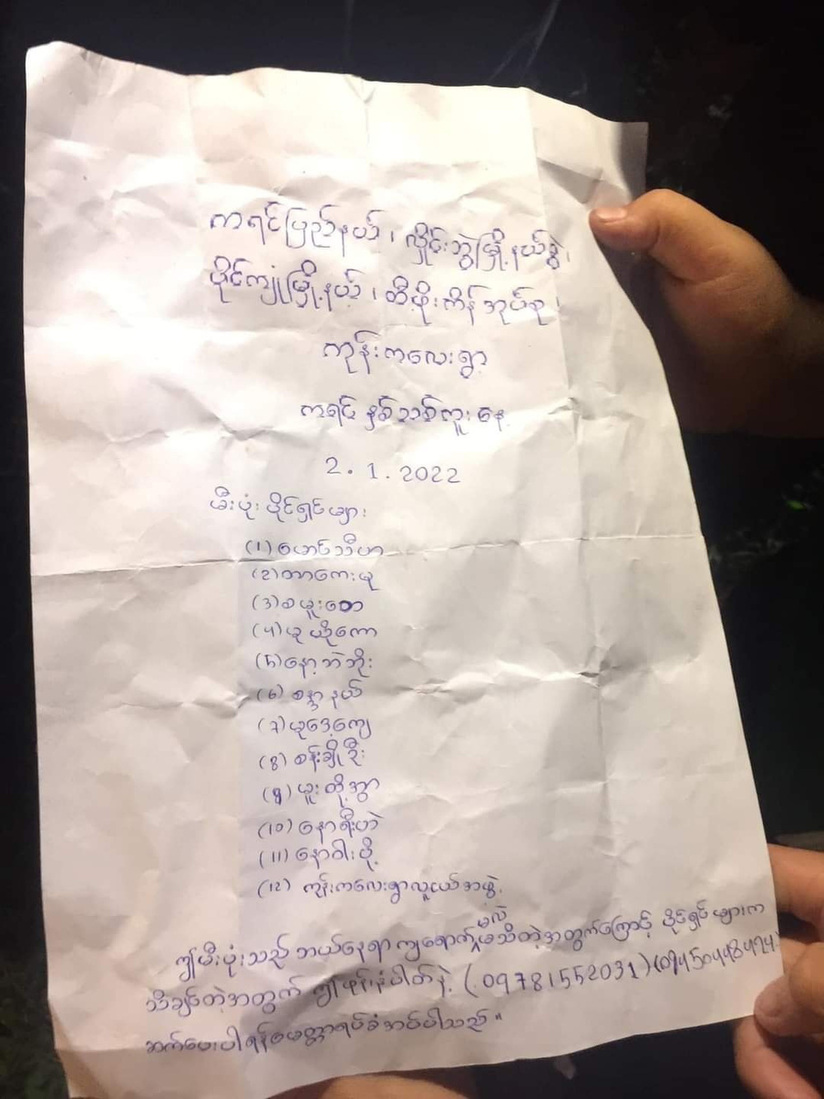 ကရင်ပြည်နယ်၊ လှိုင်းဘွဲ့မြို့နယ်ခွဲ၊
ပိုင်ကျုံမြို့နယ်၊ တီဖိုးကိန်အုပ်စု၊
ကုန်းကလေးရွာ
ကရင်နှစ်သစ်ကူးနေ့
2.1.2022
မီးပုံးပိုင်ရှင်များ
(1)
(2) တာကေးမူ
(3) စမူးတော
(4) မူယိုကော
(5) နော့ဘဲဘိုး
(6) စန္ဒာနယ်
(7) မူဒေ့ကျေ
(8) စန်းချိုဦး
(9) မူးတို့အွာ
(10) နောရီးဟဲ
(11) နောဝါးပို့
(12) ကျုံးကလေးရွာလူငယ်အဖွဲ့
ဤမီးပုံးသည် ဘယ်နေရာကျရောက်မှန်းမသိတဲ့အတွက်ကြောင့် ပိုင်ရှင်များက
သိချင်တဲ့အတွက် ဤဖုန်းနံပါတ်နဲ့ (09781552031) (09450448424)
ဆက်ပေးပါရန်မေတ္တာရပ်ခံအပ်ပါသည်။